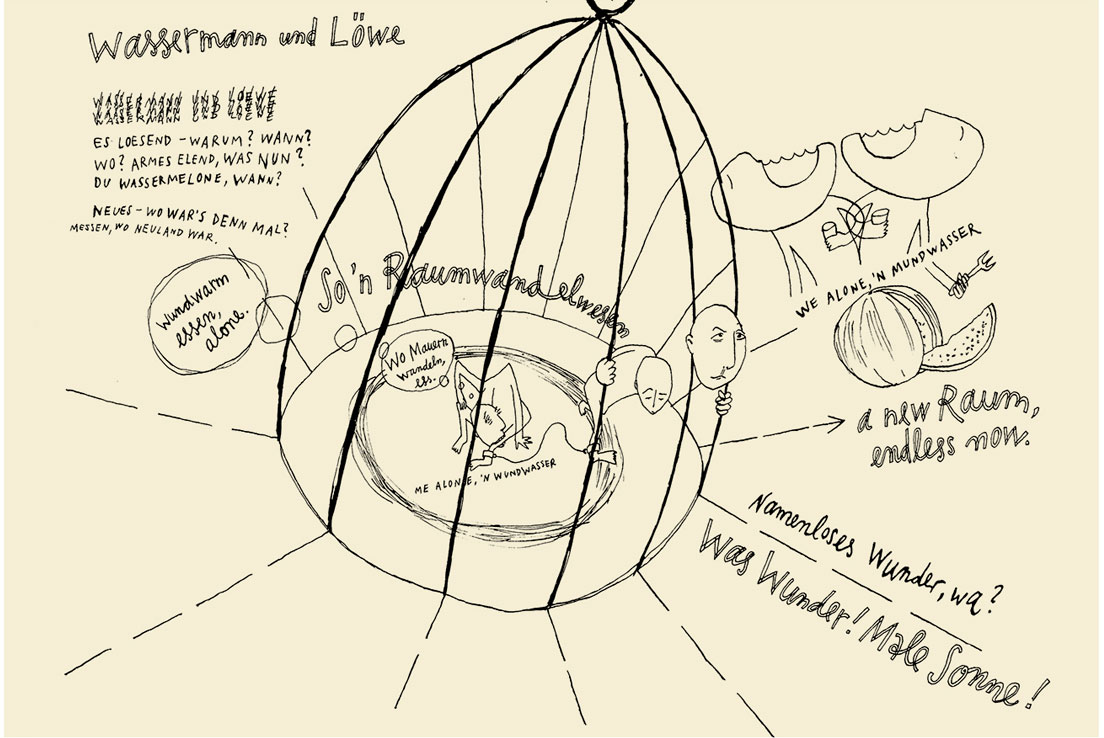 Wassermann und Löwe
WASSERMANN UND LOEWE
ES LOESEND – WARUM? WANN?
WO? ARMES ELEND, WAS NUN?
DU WASSERMELONE, WANN?
NEUES – WO WAR'S DENN MAL?
MESSEN, WO NEULAND WAR.
Wundwarm
essen,
alone.
So 'n Raumwandelwesen
Wo Mauern
wandeln,
ess.
ME ALONE, 'N WUNDWASSER
WE ALONE, 'N MUNDWASSER
a new Raum,
endless now.
Namenloses Wunder, wa?
Was Wunder! Male Sonne!